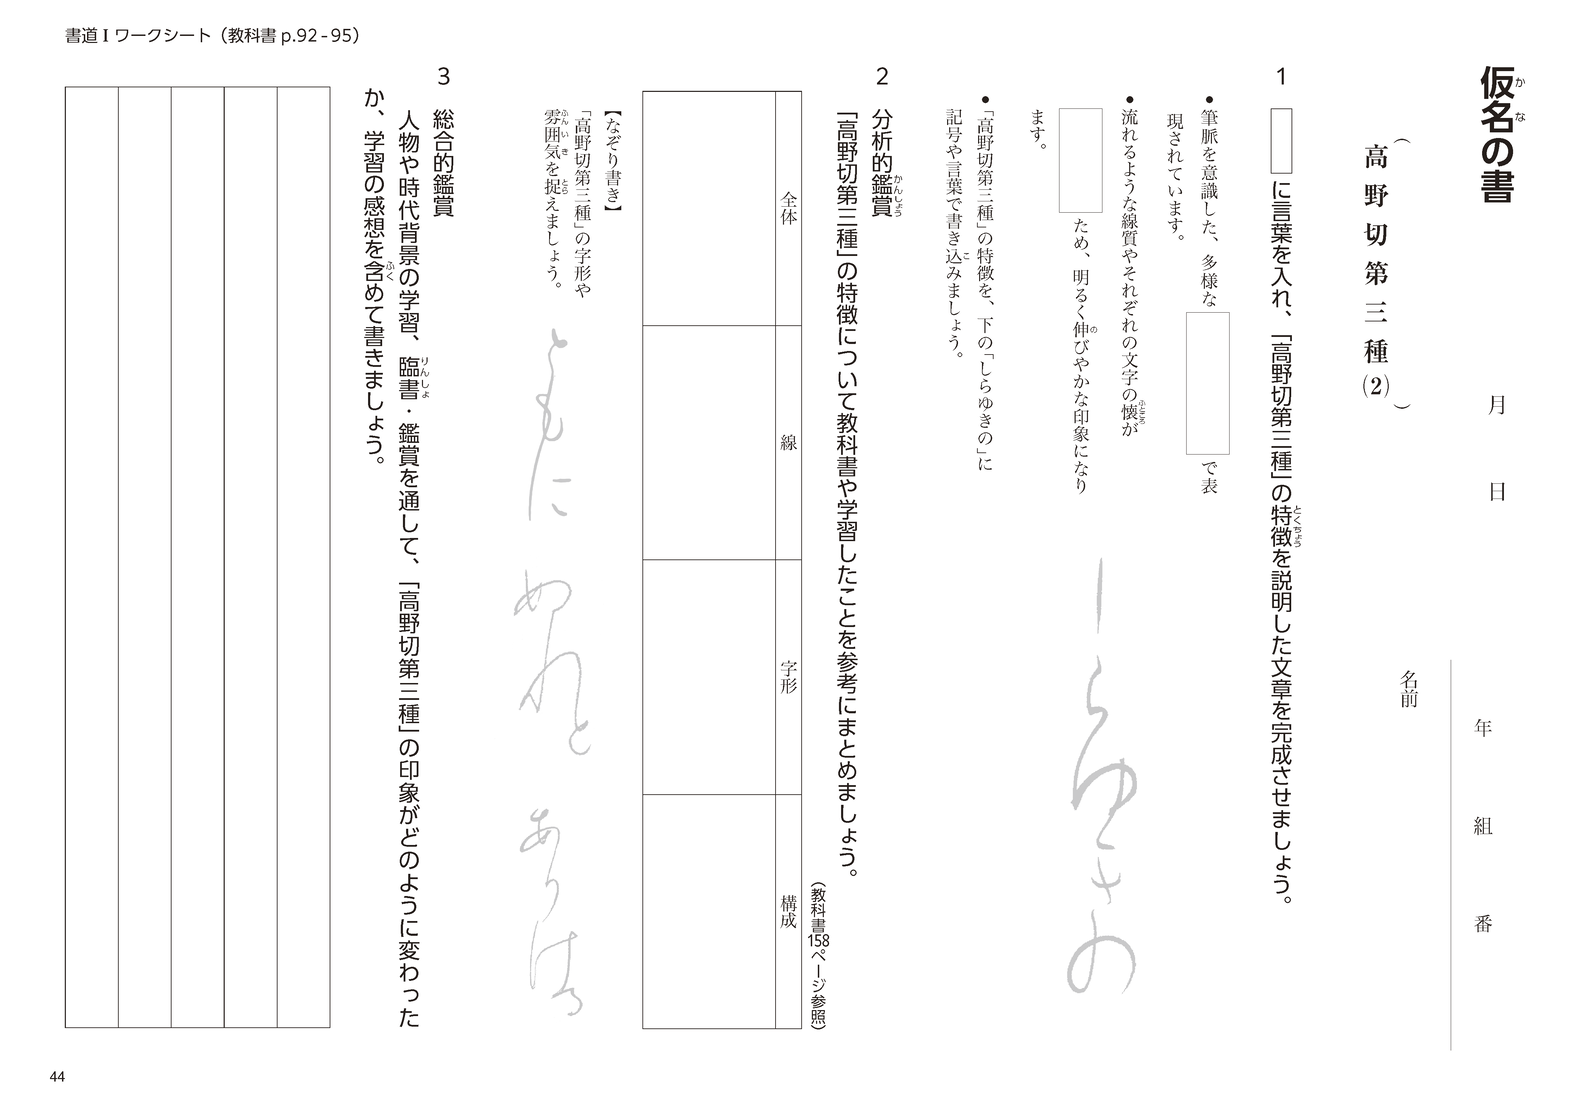 書道Ⅰワークシート（教科書 p.92 - 95）
仮名の書
かな
（高野切第三種⑵）
月　日
年　組　番
名前
1　□に言葉を入れ、「高野切第三種」の特徴を説明した文章を完成させましょう。
とくちょう
●筆脈を意識した、多様な□で表
現されています。
●流れるような線質やそれぞれの文字の懐が
ふところ
□ため、明るく伸びやかな印象になり
の
ます。
●「高野切第三種」の特徴を、下の「しらゆきの」に
記号や言葉で書き込みましょう。
こ
しらゆきの
2　分析的鑑賞
かんしょう
「高野切第三種」の特徴について教科書や学習したことを参考にまとめましょう。
（教科書158ページ参照）
全体
線
字形
構成
【なぞり書き】
「高野切第三種」の字形や
雰囲気を捉えましょう。
ふんいき　とら
ともに　ぬれと　ありはる
3　総合的鑑賞
人物や時代背景の学習、臨書・鑑賞を通して、「高野切第三種」の印象がどのように変わった
りんしょ
か、学習の感想を含めて書きましょう。
ふく
44